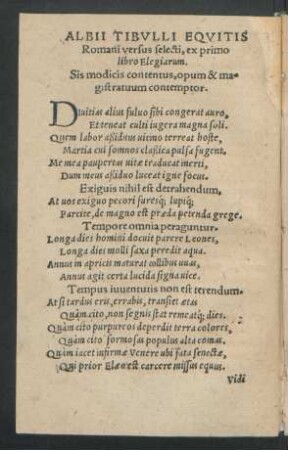 ALBII TIBVLLI EQVITIS
Romani versus selecti, ex primo
libro Elegiarum.
Sis modicis contentus, opum & ma-
gistratuum contemptor.
Diuitias alius fuluo sibi congerat auro,
Et teneat culti iugera magna soli.
Quem labor assiduus uicino terreat hoste,
Martia cui somnos classica pulsa fugent.
Me mea paupertas uitæ traducat inerti,
Dum meus assiduo luceat igne focus.
Exiguis nihil est detrahendum.
At uos exiguo pecori furesq;, lupiq;
Parcite, de magno est præda petenda grege.
Tempore omnia peraguntur.
Longa dies homini docuit parere Leones,
Longa dies molli saxa peredit aqua.
Annus in apricis maturat collibus uuas,
Annus agit certa lucida signa uice.
Tempus iuuentutis non est terendum.
At si tardus eris, errabis, transiet ætas
Quàm cito, non segnis stat remeatq; dies.
Quàm cito purpureos deperdit terra colores,
Quàm cito formosas populus alta comas.
Quàm iacet infirmæ Venere ubi fata senectæ,
Qui prior Eleo est carcere missus equus.
Vidi